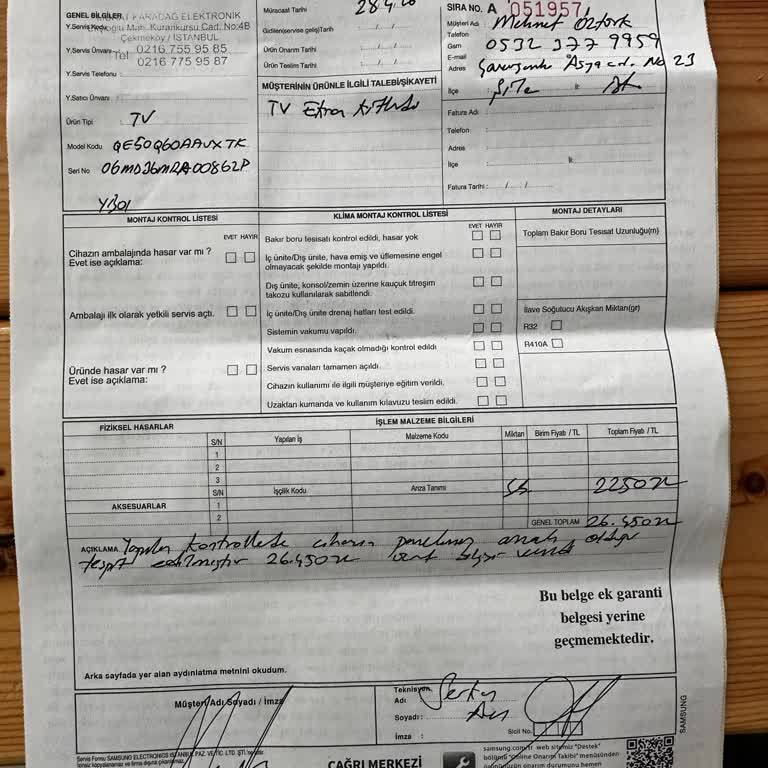 GENEL BİLGİLER
KARADAĞ ELEKTRONİK
Y.Servis Kodu
Mah. Kurankursu Cad. No:4B
Çekmeköy / İSTANBUL
Y.Servis Ünvanı
Tel 0216 755 95 85
0216 775 95 87
Y.Servis Telefonu :
Y.Satıcı Ünvanı :
Ürün Tipi : TV
Model Kodu QE50Q60AAUXTK
Seri No
Müracaat Tarihi : 28.4
Gidilen(servise geliş)Tarih : / /
Ürün Onarım Tarihi : / /
Ürün Teslim Tarihi : / /
MÜŞTERİNİN ÜRÜNLE İLGİLİ TALEBİ/ŞİKAYETİ
TV
SIRA NO. A 051957
Müşteri Adı : Mehmet Öztürk
Telefon
Gsm : 0532 377 9959
E-mail
Adres : No 23
İlçe : Şile İl:
Fatura Adı :
Telefon :
Adres :
İlçe : İl:
Fatura Tarihi : / /
MONTAJ KONTROL LİSTESİ
EVET HAYIR
Cihazın ambalajında hasar var mı ?
Evet ise açıklama:
Ambalajı ilk olarak yetkili servis açtı.
Üründe hasar var mı ?
Evet ise açıklama:
KLİMA MONTAJ KONTROL LİSTESİ
EVET HAYIR
Bakır boru tesisatı kontrol edildi, hasar yok
İç ünite/Dış ünite, hava emiş ve üflemesine engel
olmayacak şekilde montajı yapıldı.
Dış ünite, konsol/zemin üzerine kauçuk titreşim
takozu kullanılarak sabitlendi.
İç ünite/Dış ünite drenaj hatları test edildi.
Sistemin vakumu yapıldı.
Vakum esnasında kaçak olmadığı kontrol edildi
Servis vanaları tamamen açıldı.
Cihazın kullanımı ile ilgili müşteriye eğitim verildi.
Uzaktan kumanda ve kullanım kılavuzu teslim edildi.
MONTAJ DETAYLARI
Toplam Bakır Boru Tesisat Uzunluğu(m)
İlave Soğutucu Akışkan Miktarı(gr)
R32
R410A
FİZİKSEL HASARLAR
AKSESUARLAR
İŞLEM MALZEME BİLGİLERİ
S/N Yapılan İş Malzeme Kodu Miktarı Birim Fiyatı / TL Toplam Fiyatı / TL
1
2
3
S/N İşçilik Kodu Arıza Tanımı 2250 TL
1
2 GENEL TOPLAM 26.450 TL
AÇIKLAMA Yapılan kontrollerde cihazın panelinin arızalı olduğu
tespit edilmiştir 26.450 TL bilgisi verildi
Bu belge ek garanti
belgesi yerine
geçmemektedir.
Arka sayfada yer alan aydınlatma metnini okudum.
Müşteri Adı/Soyadı / İmza
Teknisyen
Adı : Serkan
Soyadı :
İmza :
Sicil No.
SAMSUNG
Servis Formu SAMSUNG ELECTRONICS İSTANBUL PAZ. VE TİC. LTD. ŞTİ.
ÇAĞRI MERKEZİ
samsung.com/tr web sitemiz "Destek"
bölümü "Online Onarım Takibi" menüsünden
ürününüzün onarım durumunu hemen